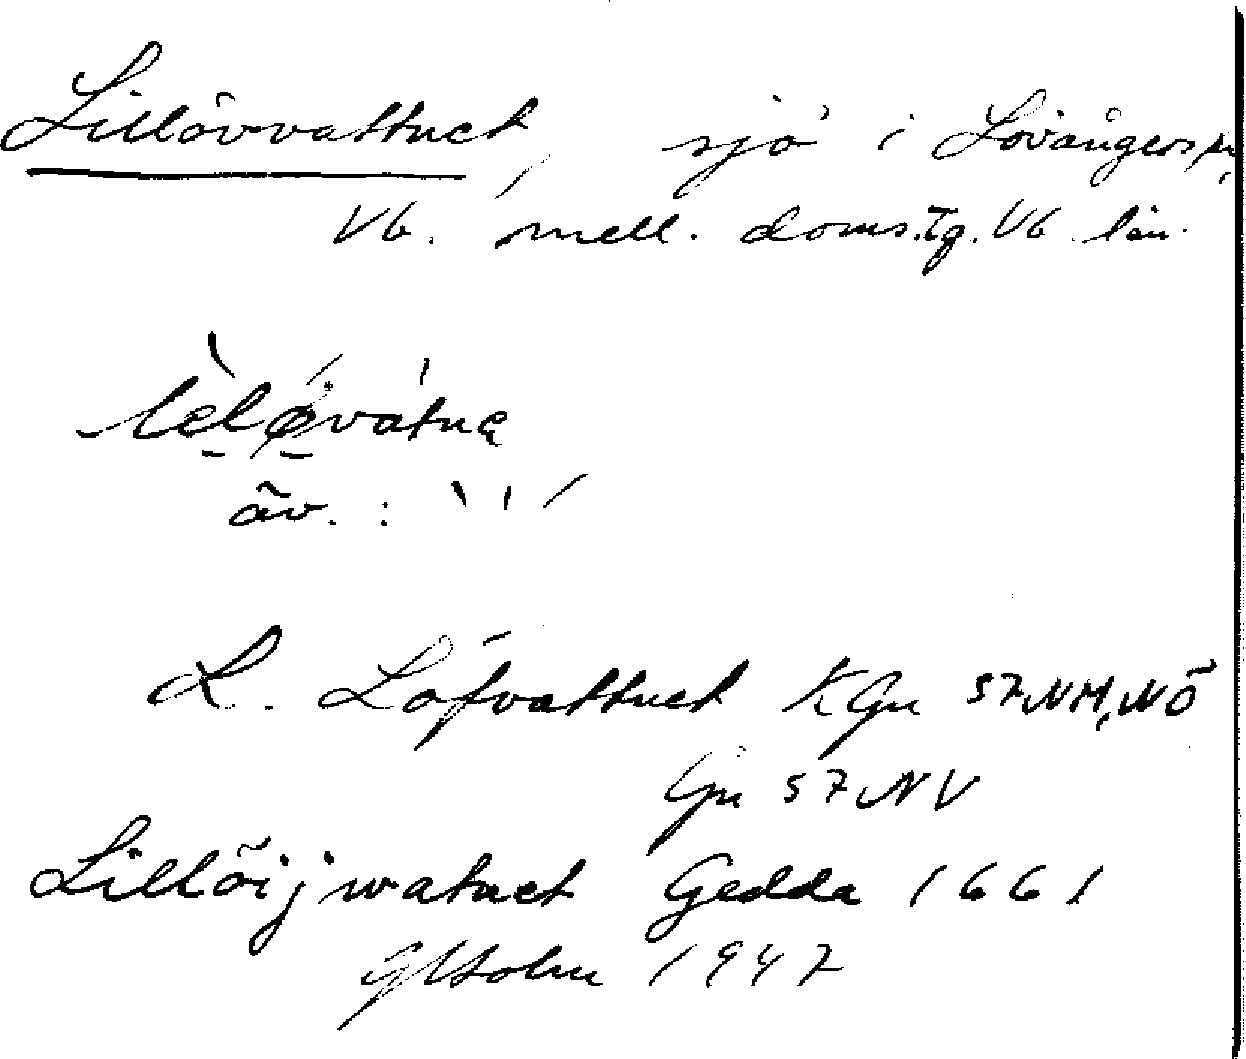 Lillövvattnet, sjö i Lövångers sn,
Vb. mell. doms. tg. Vb län.
lèløvatnę
äv. :
L. Löfvattnet KGn 57 NM, NÖ
Gn 57 NV
Lillöijwatnet Gedda 1661
G Holm 1947